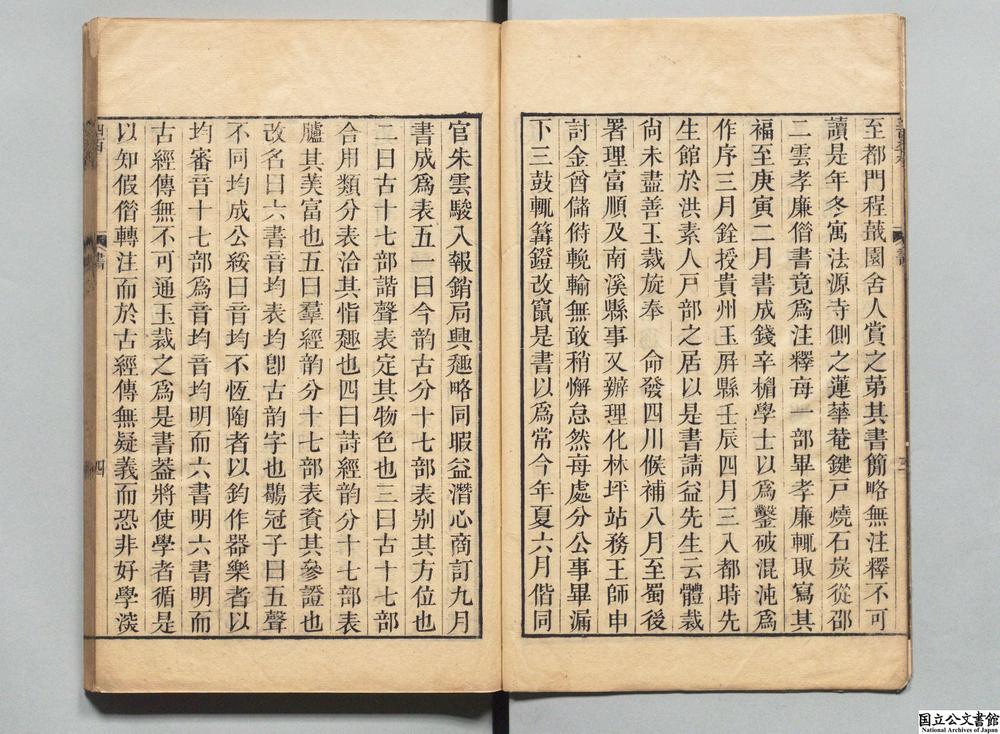 至都門程蕺園舍人賞之弟其書簡略無注釋不可
讀是年冬寓法源寺側之蓮華菴鍵戸燒石炭從邵
二雲孝廉借書竟爲注釋每一部畢孝廉輒取寫其
福至庚寅二月書成錢辛楣學士以爲鑿破混沌爲
作序三月銓授貴州玉屏縣壬辰四月三入都時先
生館於洪素人戸部之居以是書請益先生云體裁
尙未盡善玉裁旋奉　命發四川候補八月至蜀後
署理富順及南溪縣事又辦理化林坪站務王師申
討金酋儲偫輓輸無敢稍懈怠然每處分公事畢漏
下三鼓輒篝鐙改竄是書以爲常今年夏六月偕同
官朱雲駿入報銷局興趣略同暇益潛心商訂九月
書成爲表五一曰今韵古分十七部表别其方位也
二曰古十七部諧聲表定其物色也三曰古十七部
合用類分表洽其恉趣也四曰詩經韵分十七部表
臚其美富也五曰羣經韵分十七部表資其參證也
改名曰六書音均表均卽古韵字也鶡冠子曰五聲
不同均成公綏曰音均不恆陶者以鈞作器樂者以
均審音十七部爲音均音均明而六書明六書明而
古經傳無不可通玉裁之爲是書葢將使學者循是
以知假借轉注而於古經傳無疑義而恐非好學湥
四
国立公文書館
National Archives of Japan